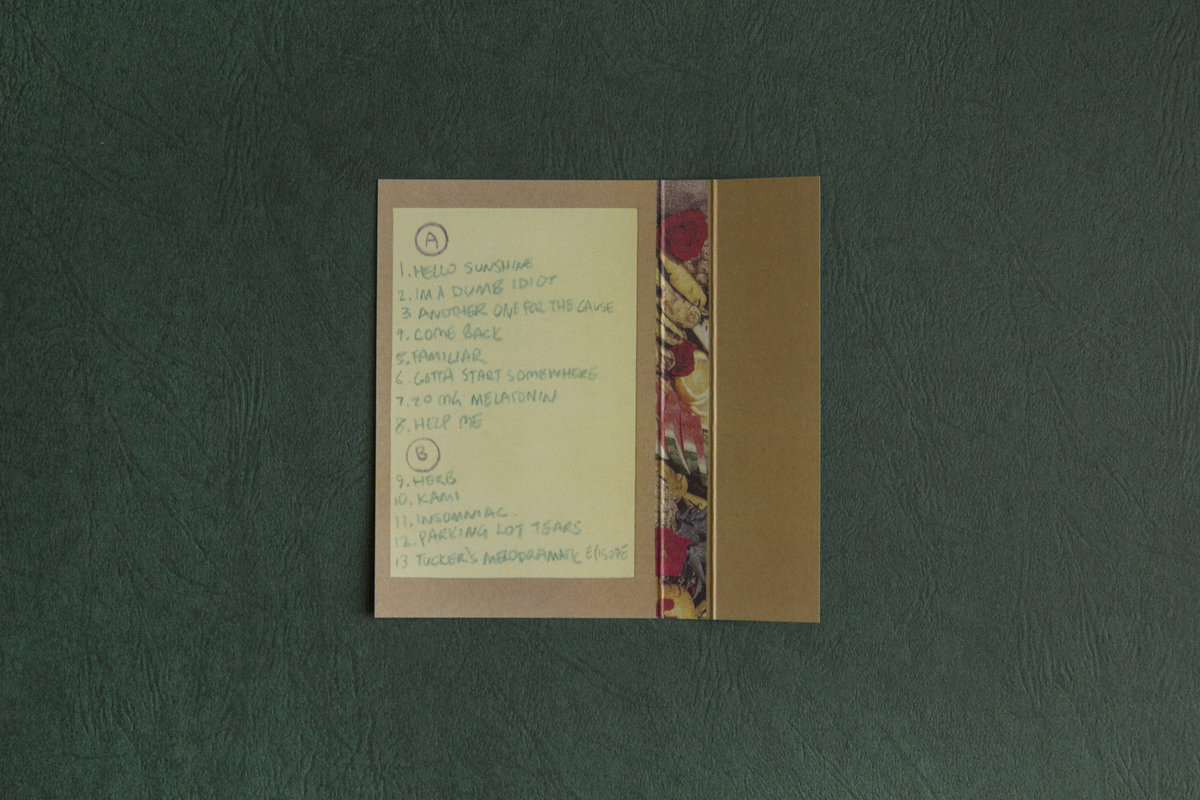 A
1. HELLO SUNSHINE
2. IM A DUMB IDIOT
3 ANOTHER ONE FOR THE CAUSE
4. COME BACK
5. FAMILIAR
6. GOTTA START SOMEWHERE
7. 20 MG MELATONIN
8. HELP ME
B
9. HERB
10. KAMI
11. INSOMNIAC
12. PARKING LOT TEARS
13 TUCKER'S MELODRAMATIC EPISODE